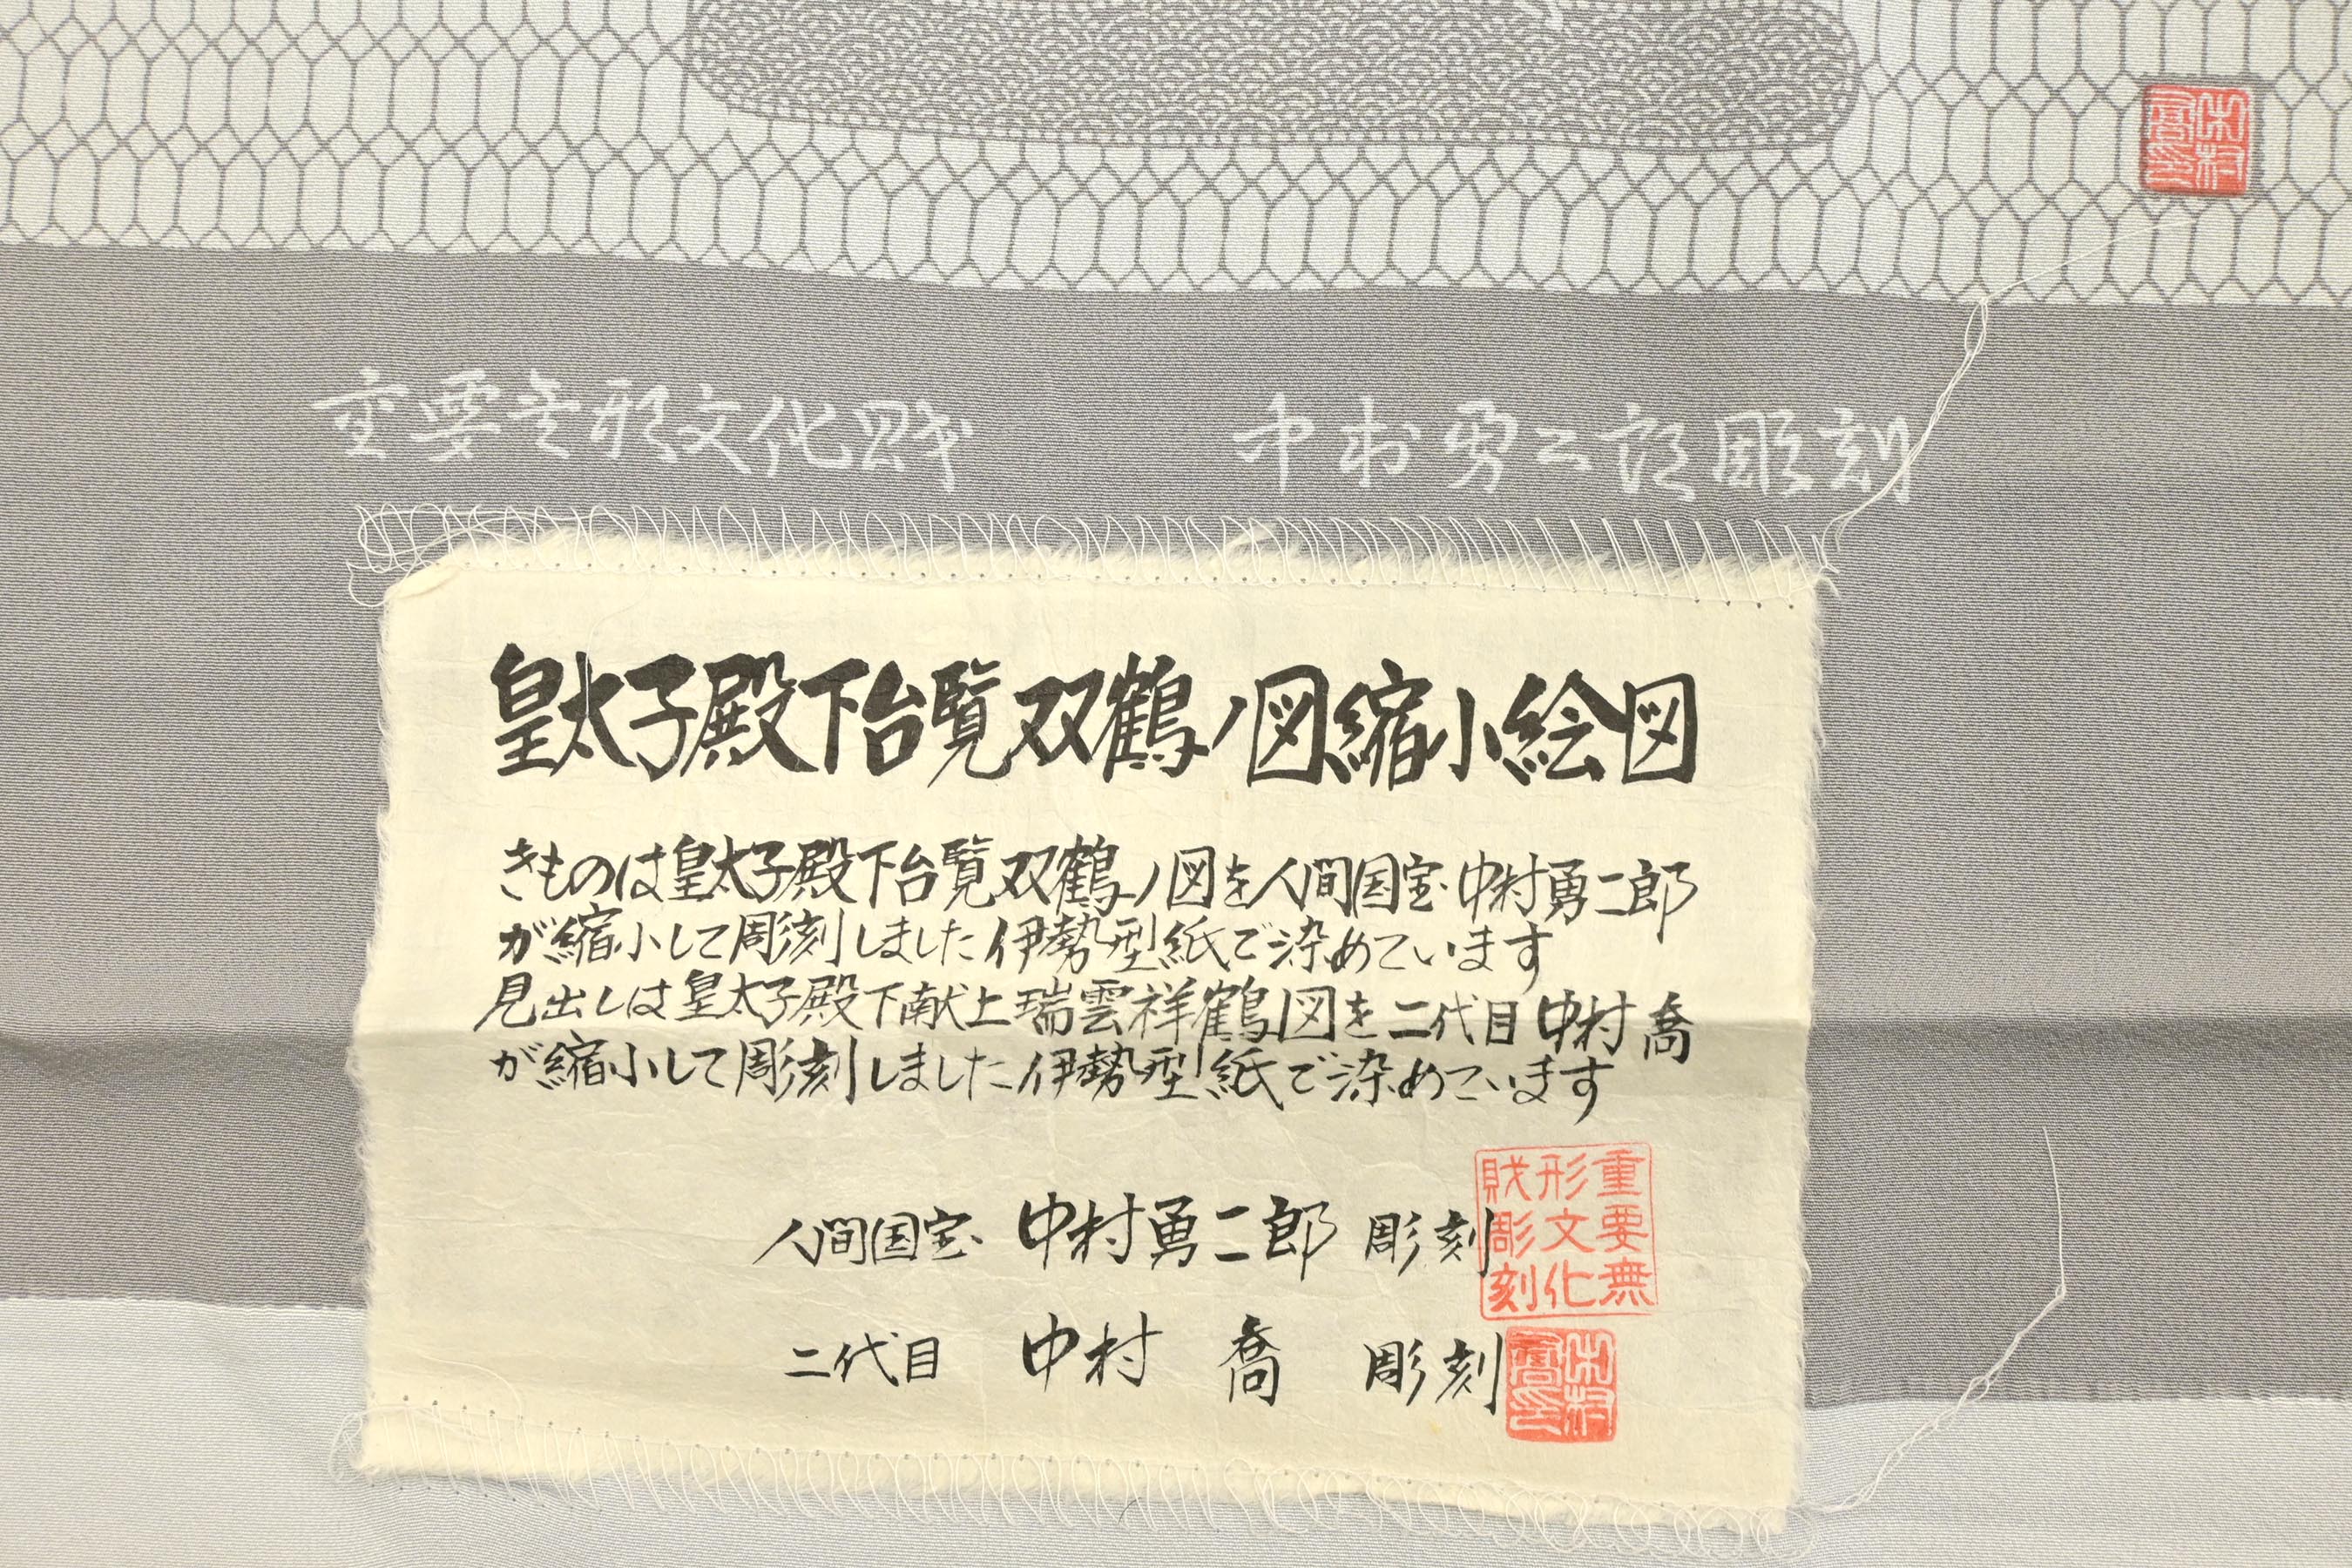 中村
喬印
重要無形文化財 中村勇二郎彫刻
皇太子殿下台覧双鶴ノ図縮小絵図
きものは皇太子殿下台覧双鶴ノ図を人間国宝中村勇二郎
が縮小して彫刻しました伊勢型紙で染めています
見出しは皇太子殿下献上瑞雲祥鶴図を二代目中村喬
が縮小して彫刻しました伊勢型紙で染めています
人間国宝 中村勇二郎 彫刻
重要無
形文化
財彫刻
二代目 中村 喬 彫刻
中村
喬印